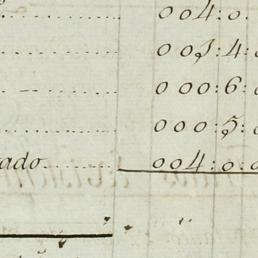 004:0:
001:4:
000:6:
000:5:
ado 004:0:0